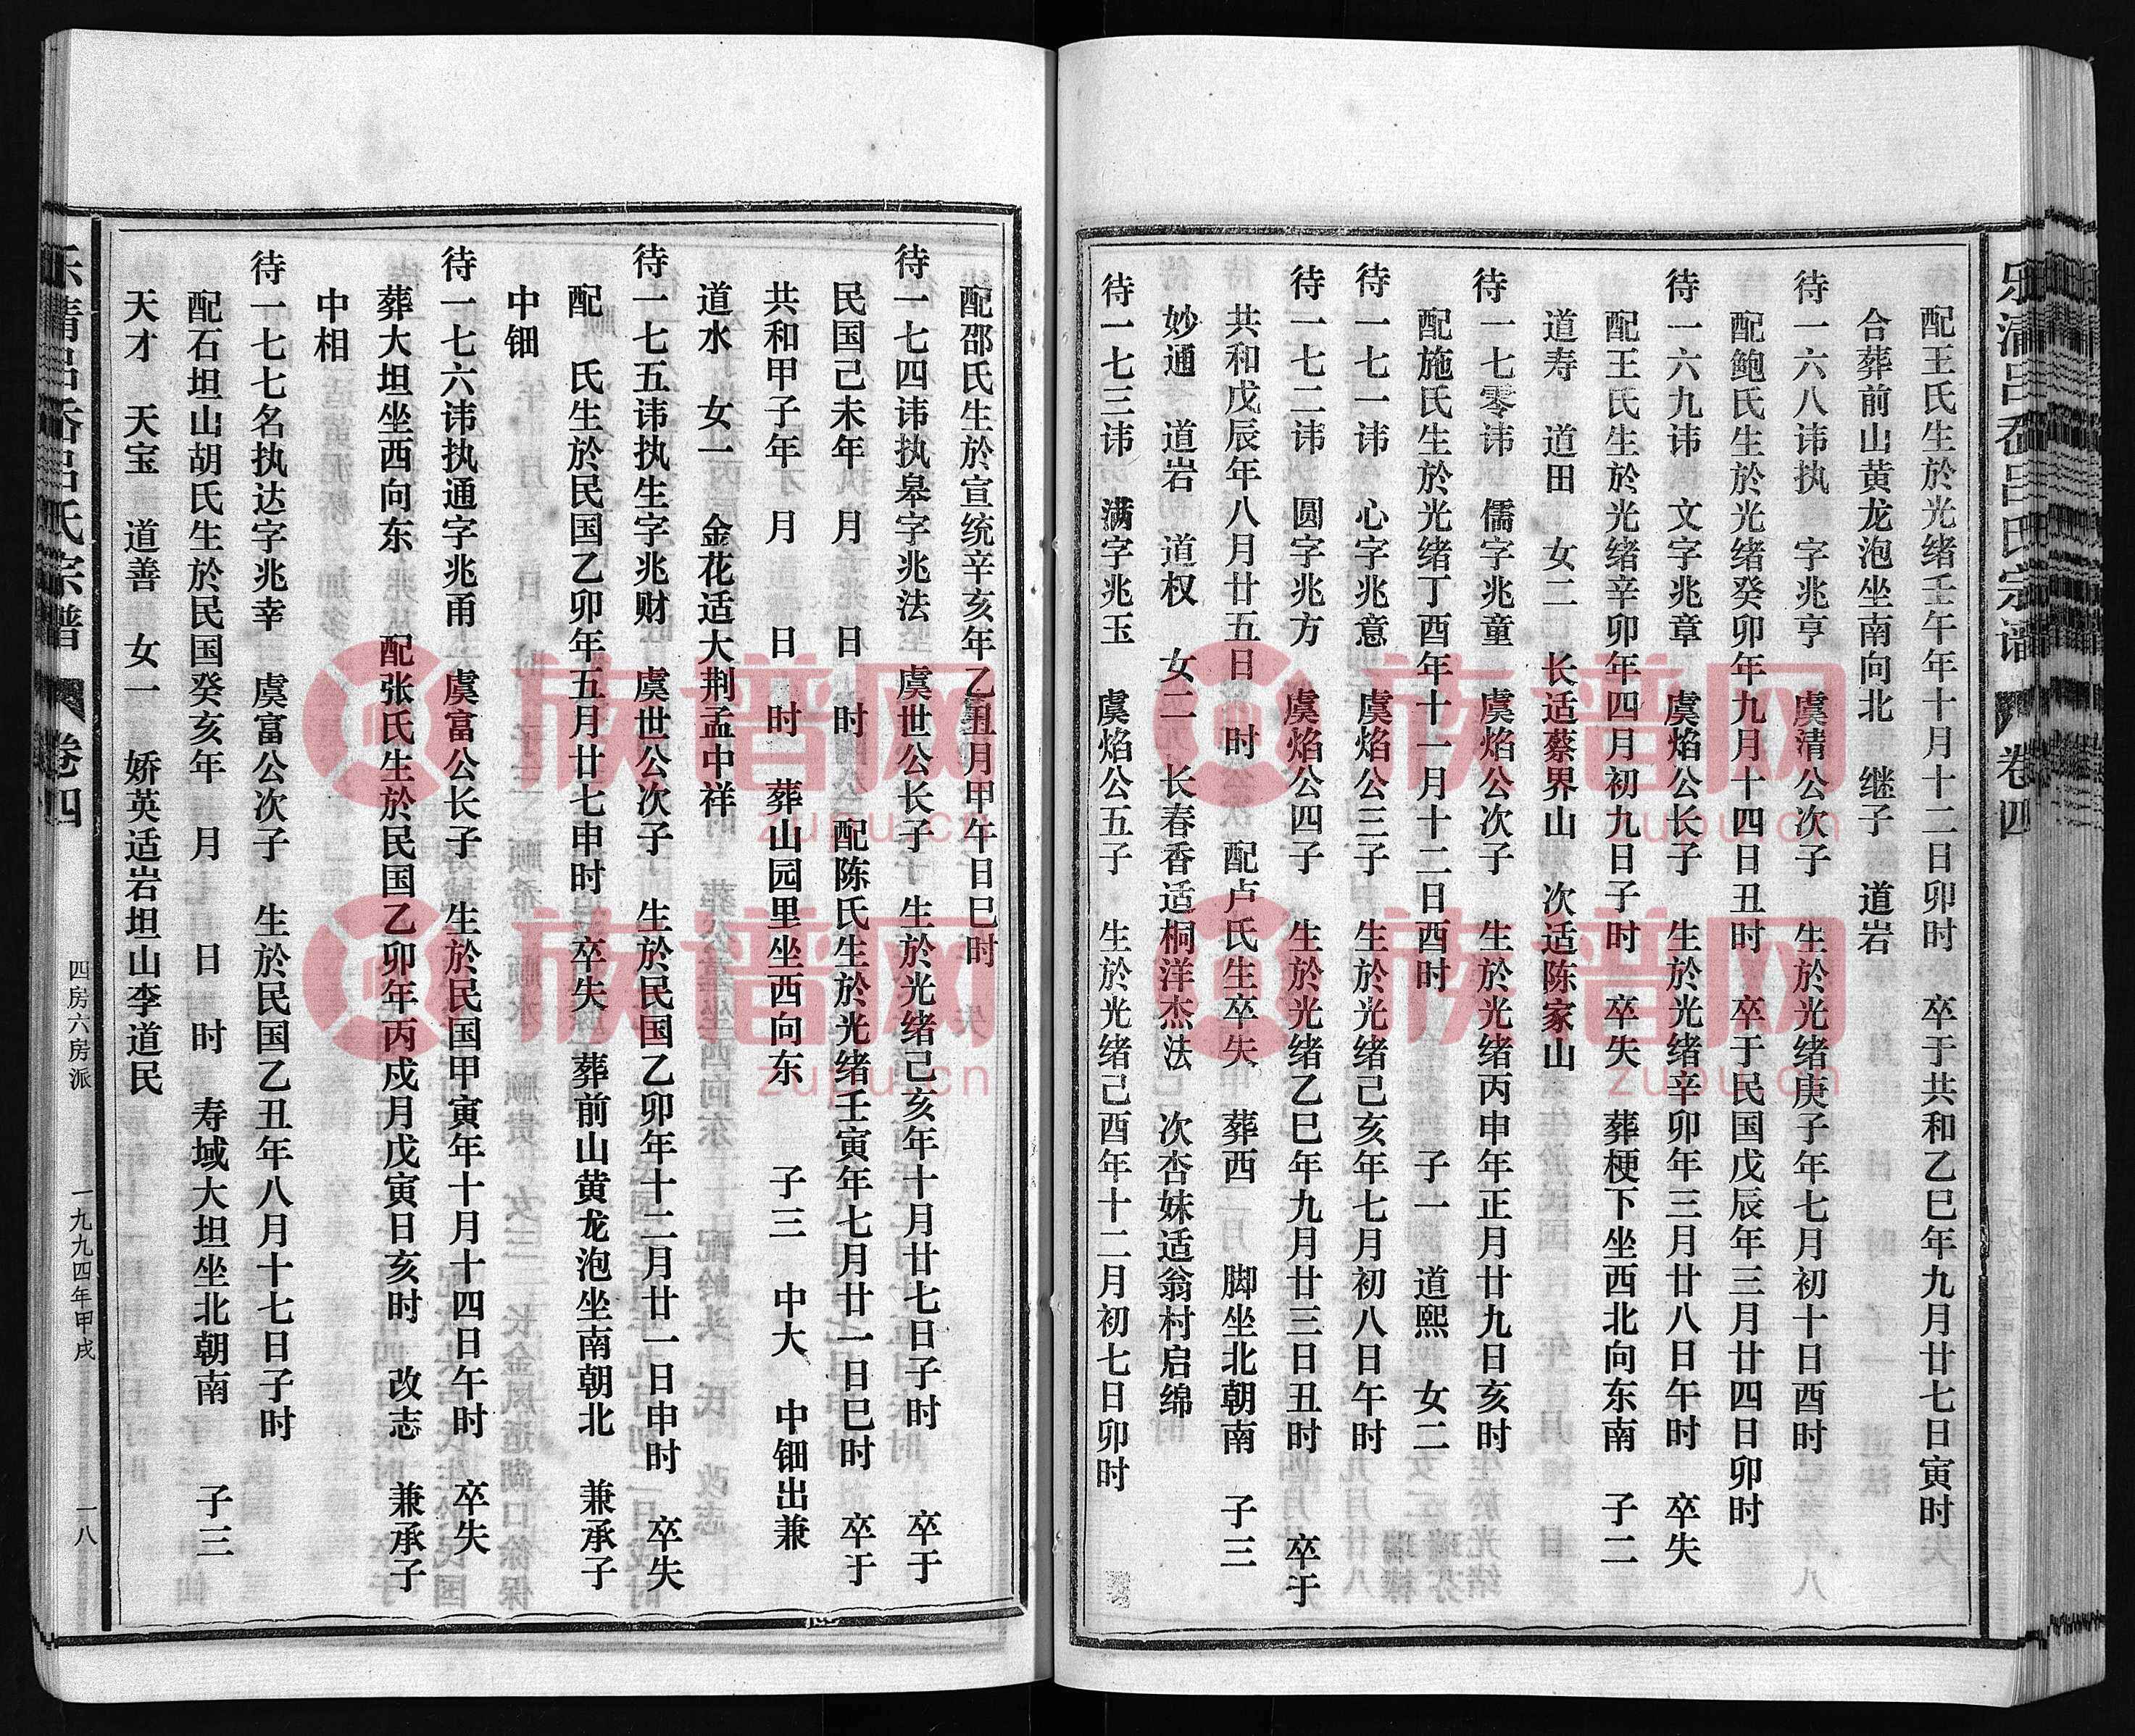 乐清吕岙吕氏宗谱 卷四
配王氏生於光绪壬午年十月十二日卯时 卒于共和乙巳年九月廿七日寅时
合葬前山黄龙泡坐南向北 继子 道岩
待一六八讳执 字兆亨 虞清公次子 生於光绪庚子年七月初十日酉时
配鲍氏生於光绪癸卯年九月十四日丑时 卒于民国戊辰年三月廿四日卯时
待一六九讳 文字兆章 虞焰公长子 生於光绪辛卯年三月廿八日午时 卒失
配王氏生於光绪辛卯年四月初九日子时 卒失 葬梗下坐西北向东南 子二
道寿 道田 女二 长适蔡界山 次适陈家山
待一七零讳 儒字兆童 虞焰公次子 生於光绪丙申年正月廿九日亥时
配施氏生於光绪丁酉年十一月十二日酉时 子一 道熙 女二
待一七一讳 心字兆意 虞焰公三子 生於光绪己亥年七月初八日午时
待一七二讳 圆字兆方 虞焰公四子 生於光绪乙巳年九月廿三日丑时 卒于
共和戊辰年八月廿五日 时 配卢氏生卒失 葬西 脚坐北朝南 子三
妙通 道岩 道权 女二 长春香适桐洋杰法 次杏妹适翁村启绵
待一七三讳 满字兆玉 虞焰公五子 生於光绪己酉年十二月初七日卯时
配邵氏生於宣统辛亥年乙丑月甲午日巳时
待一七四讳执皋字兆法 虞世公长子 生於光绪己亥年十月廿七日子时 卒于
民国己未年 月 日 时 配陈氏生於光绪壬寅年七月廿一日巳时 卒于
共和甲子年 月 日 时 葬山园里坐西向东 子三 中大 中钿出兼
道水 女一 金花适大荆孟中祥
待一七五讳执生字兆财 虞世公次子 生於民国乙卯年十二月廿一日申时 卒失
配 氏生於民国乙卯年五月廿七申时 卒失 葬前山黄龙泡坐南朝北 兼承子
中钿
待一七六讳执通字兆甬 虞富公长子 生於民国甲寅年十月十四日午时 卒失
葬大坦坐西向东 配张氏生於民国乙卯年丙戌月戊寅日亥时 改志 兼承子
中相
待一七七名执达字兆幸 虞富公次子 生於民国乙丑年八月十七日子时
配石坦山胡氏生於民国癸亥年 月 日 时 寿域大坦坐北朝南 子三
天才 天宝 道善 女一 娇英适岩坦山李道民
乐清吕岙吕氏宗谱 卷四 四房六房派 一九九四年甲戌 一八
族谱网
zupu.cn
族谱网
zupu.cn
族谱网
zupu.cn
族谱网
zupu.cn